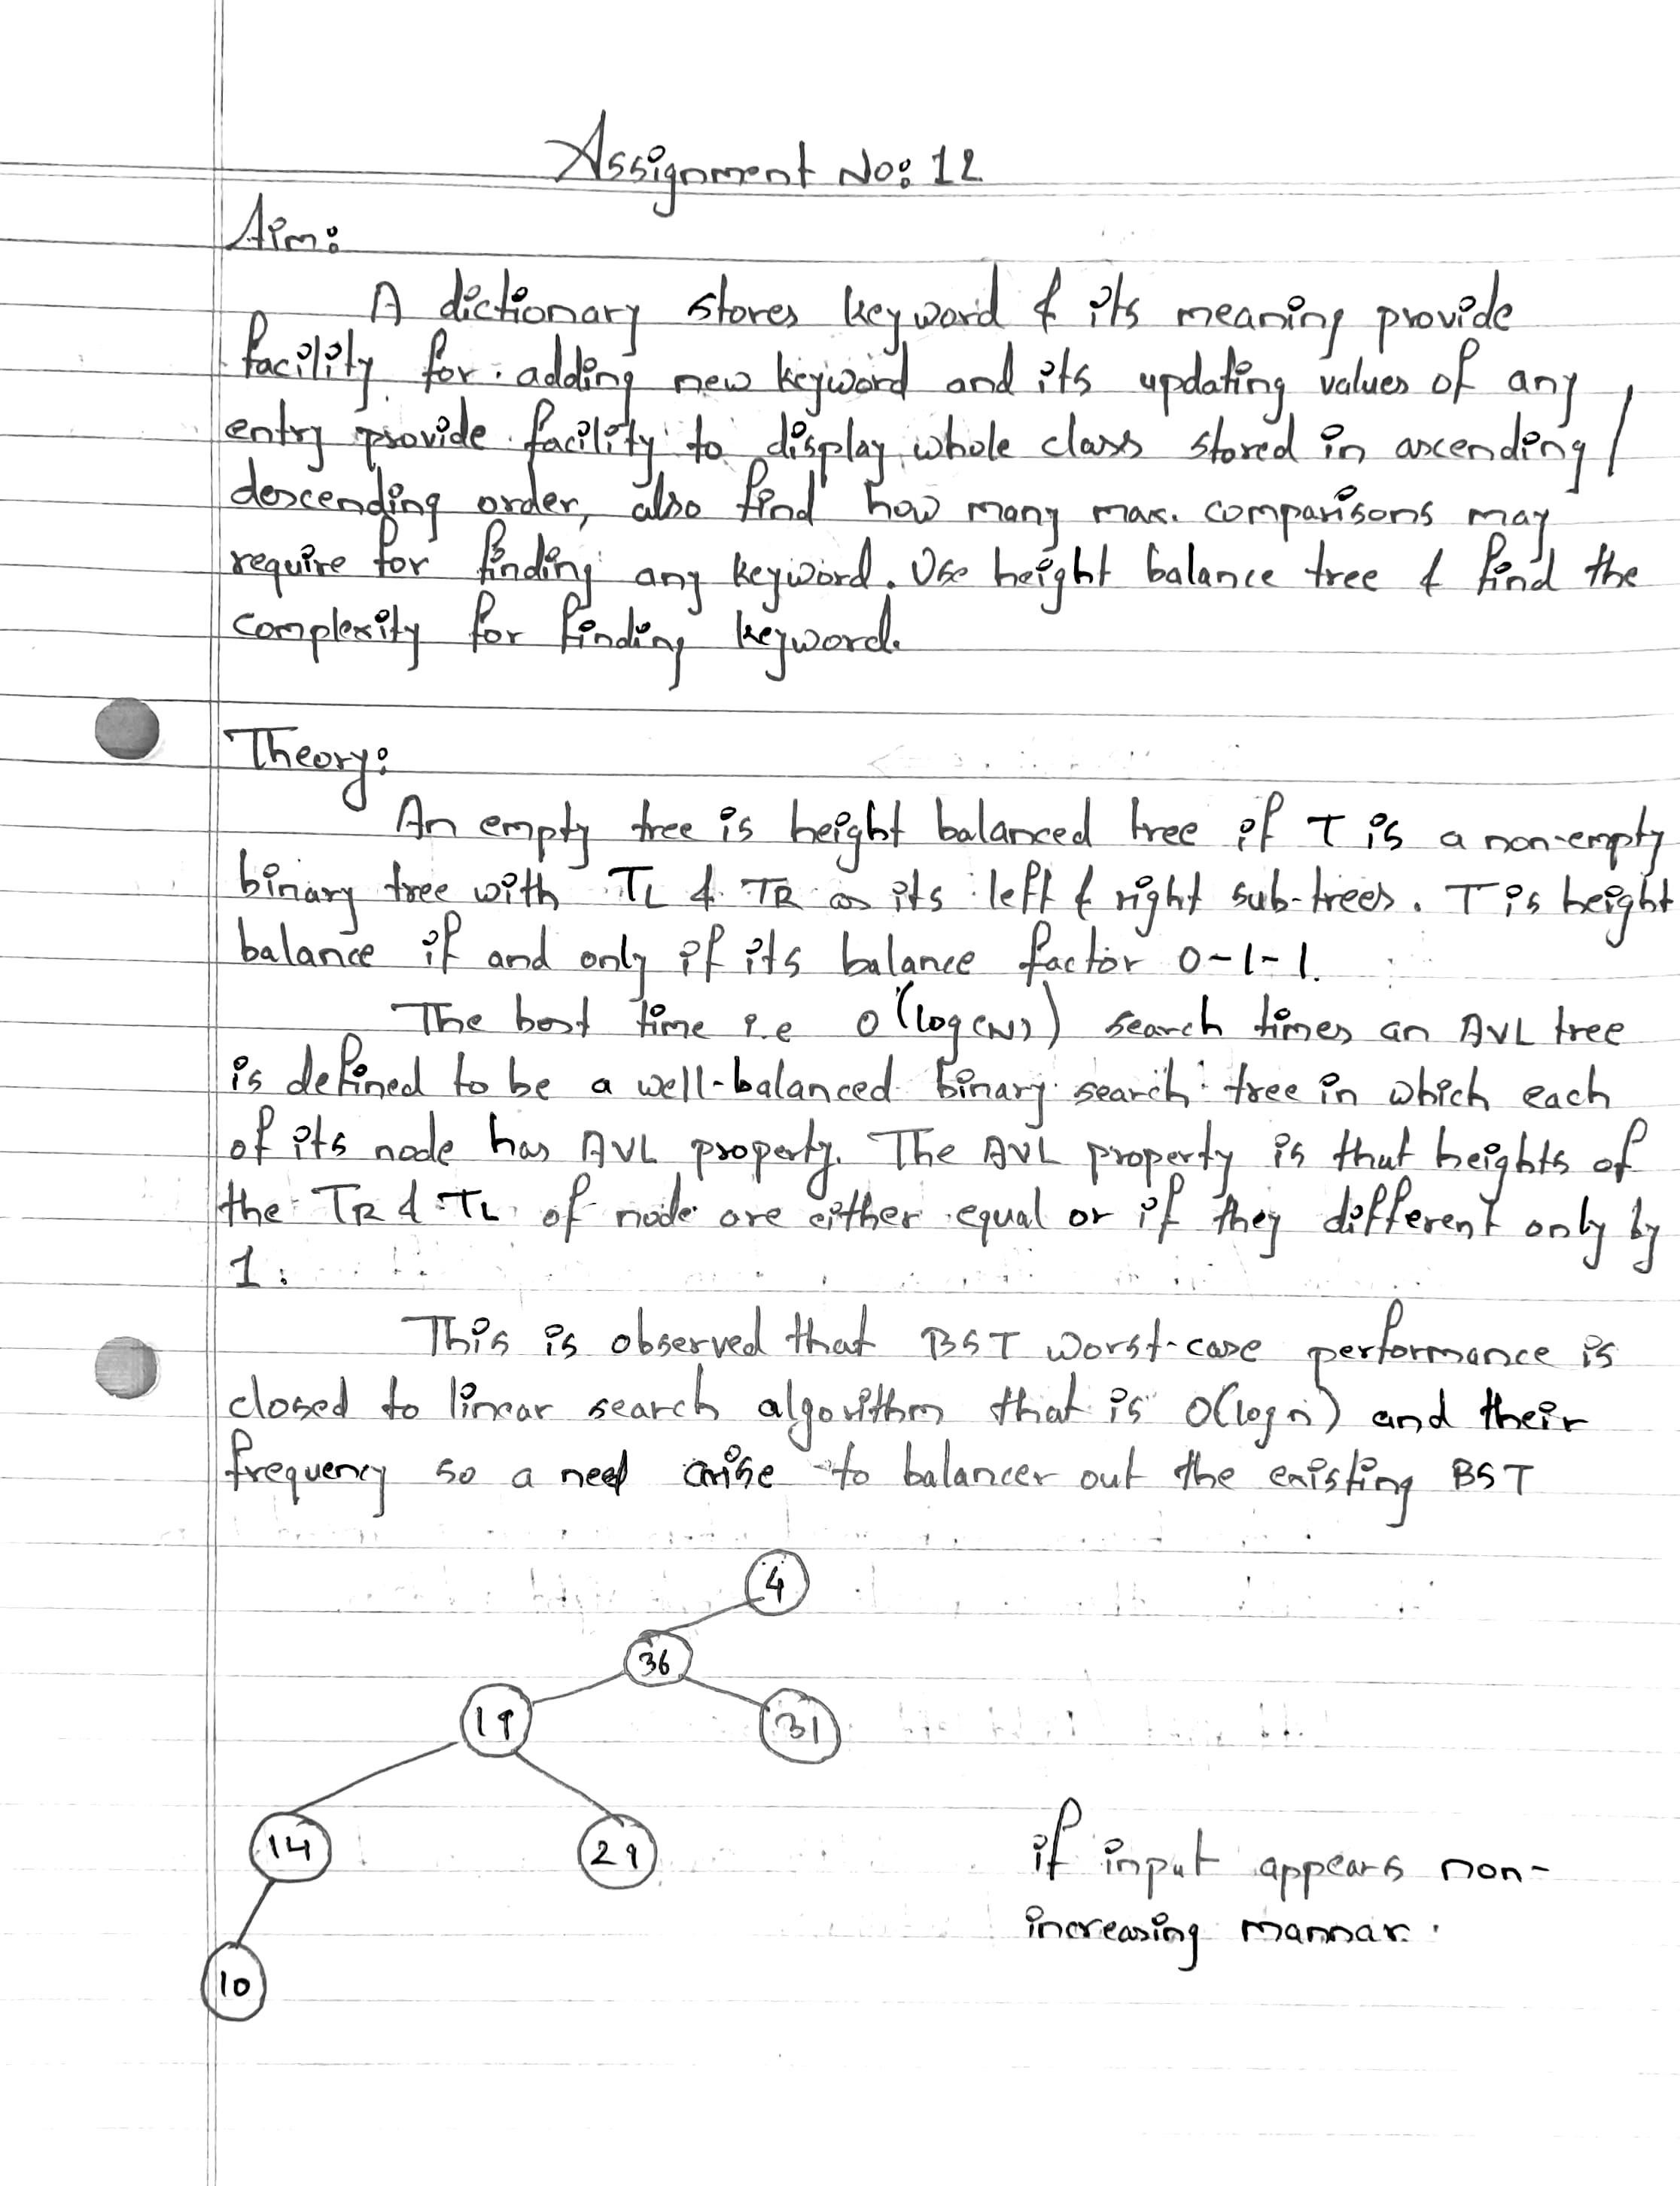 Assignment No: 12
Aim:
A dictionary stores keyword & its meaning provide
facility for adding new keyword and its updating values of any
entry provide facility to display whole class stored in ascending /
descending order, also find how many max. comparisons may
require for finding any keyword. Use height balance tree & find the
complexity for finding keyword.
Theory:
An empty tree is height balanced tree if T is a non-empty
binary tree with TL & TR as its left & right sub-trees. T is height
balance if and only if its balance factor 0-1-1.
The best time i.e O(log(N)) search times an AVL tree
is defined to be a well-balanced binary search tree in which each
of its node has AVL property. The AVL property is that heights of
the TR & TL of node are either equal or if they different only by
1.
This is observed that BST worst-case performance is
closed to linear search algorithm that is O(log n) and their
frequency so a need arise to balancer out the existing BST
4
36
19
31
14
29
if input appears non-
increasing mannar.
10